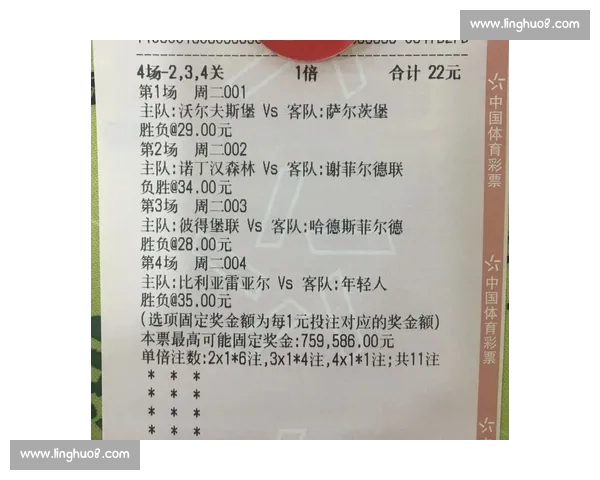 www.linghuo8.com
4场-2,3,4关 1倍 合计 22元
第1场 周二001
主队:沃尔夫斯堡 Vs 客队:萨尔茨堡
胜负@29.00元
第2场 周二002
主队:诺丁汉森林 Vs 客队:谢菲尔德联
负胜@34.00元
第3场 周二003
主队:彼得堡联 Vs 客队:哈德斯菲尔德
胜负@28.00元
第4场 周二004
主队:比利亚雷亚尔 Vs 客队:年轻人
胜负@35.00元
(选项固定奖金额为每1元投注对应的奖金额)
本票最高可能固定奖金:759,586.00元
单倍注数:2x1*6注,3x1*4注,4x1*1注;共11注
* * *
* * *
* * *
* * *
中国体育彩票
中国体育彩票
www.linghuo8.com